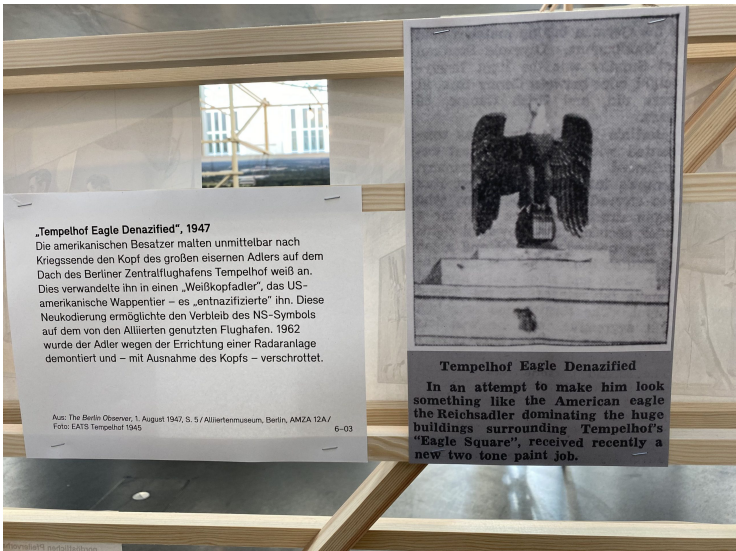 „Tempelhof Eagle Denazified“, 1947
Die amerikanischen Besatzer malten unmittelbar nach
Kriegssende den Kopf des großen eisernen Adlers auf dem
Dach des Berliner Zentralflughafens Tempelhof weiß an.
Dies verwandelte ihn in einen „Weißkopfadler“, das US-
amerikanische Wappentier – es „entnazifizierte“ ihn. Diese
Neukodierung ermöglichte den Verbleib des NS-Symbols
auf dem von den Alliierten genutzten Flughafen. 1962
wurde der Adler wegen der Errichtung einer Radaranlage
demontiert und – mit Ausnahme des Kopfs – verschrottet.
Aus: The Berlin Observer, 1. August 1947, S. 5 / Alliiertenmuseum, Berlin, AMZA 12A /
Foto: EATS Tempelhof 1945
6–03
Tempelhof Eagle Denazified
In an attempt to make him look
something like the American eagle
the Reichsadler dominating the huge
buildings surrounding Tempelhof's
"Eagle Square", received recently a
new two tone paint job.